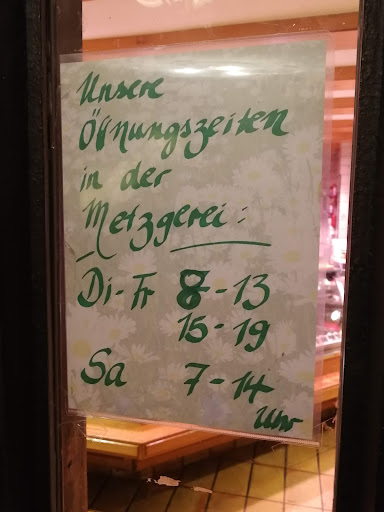 Unsere
Öffnungszeiten
in der
Metzgerei:
Di-Fr 8-13
15-19
Sa 7-14
Uhr